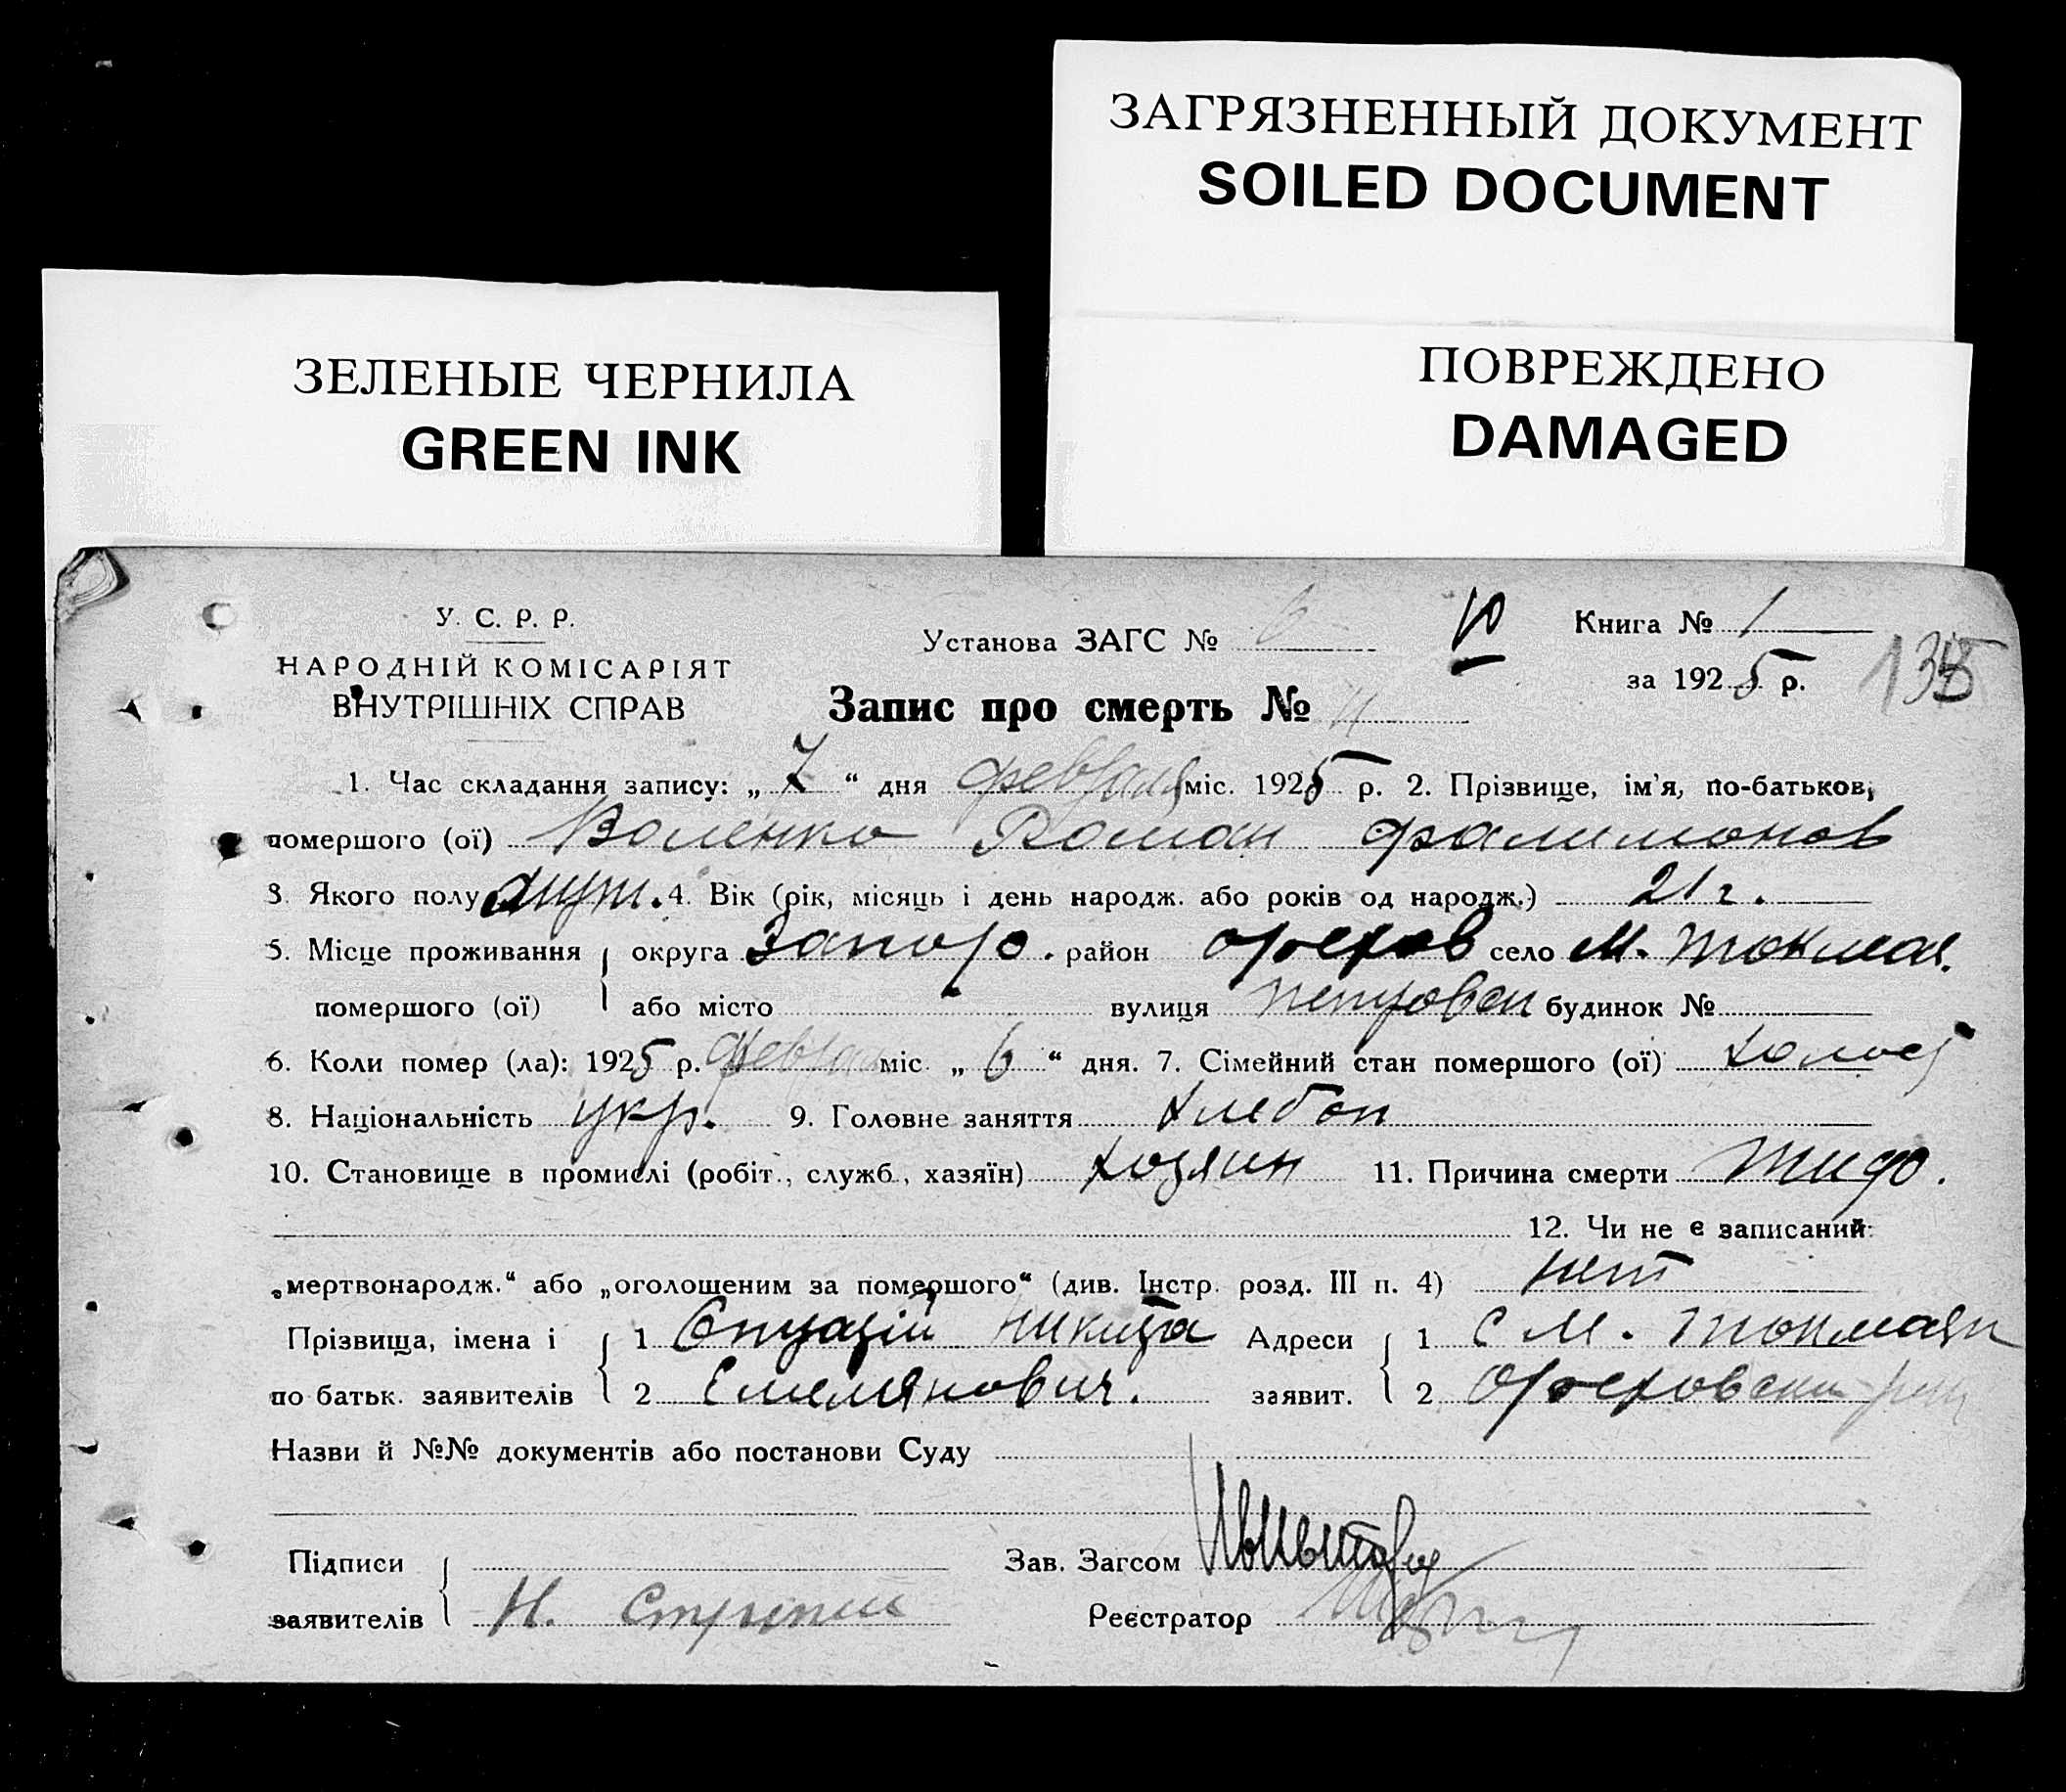 ЗАГРЯЗНЕННЫЙ ДОКУМЕНТ
SOILED DOCUMENT
ЗЕЛЕНЫЕ ЧЕРНИЛА
GREEN INK
ПОВРЕЖДЕНО
DAMAGED
У. С. Р. Р.
НАРОДНІЙ КОМІСАРІЯТ
ВНУТРІШНІХ СПРАВ
Установа ЗАГС № 6
10
Книга № 1
за 1925 р.
135
Запис про смерть № 11
1. Час складання запису: „7“ дня февраля міс. 1925 р. 2. Прізвище, ім'я, по-батькові,
помершого (ої) Воленко Роман Фалимонов
3. Якого полу муж. 4. Вік (рік, місяць і день народж. або років од народж.) 21 г.
5. Місце проживання округа Запор. район Орехов село М. Токмач.
помершого (ої) або місто вулиця будинок №
6. Коли помер (ла): 1925 р. февраля міс. „6“ дня. 7. Сімейний стан помершого (ої) холост
8. Національність укр. 9. Головне заняття хлебоп
10. Становище в промислі (робіт., служб., хазяїн) хозяин 11. Причина смерти
12. Чи не є записаний
„мертвонародж.“ або „оголошеним за помершого“ (див. Інстр. розд. III п. 4) нет
Прізвища, імена і 1 Никита Адреси 1 С М. Токмачк
по батьк. заявителів 2 Емелянович. заявит. 2 Ореховски
Назви й №№ документів або постанови Суду
Підписи Зав. Загсом
заявителів Н. Реєстратор